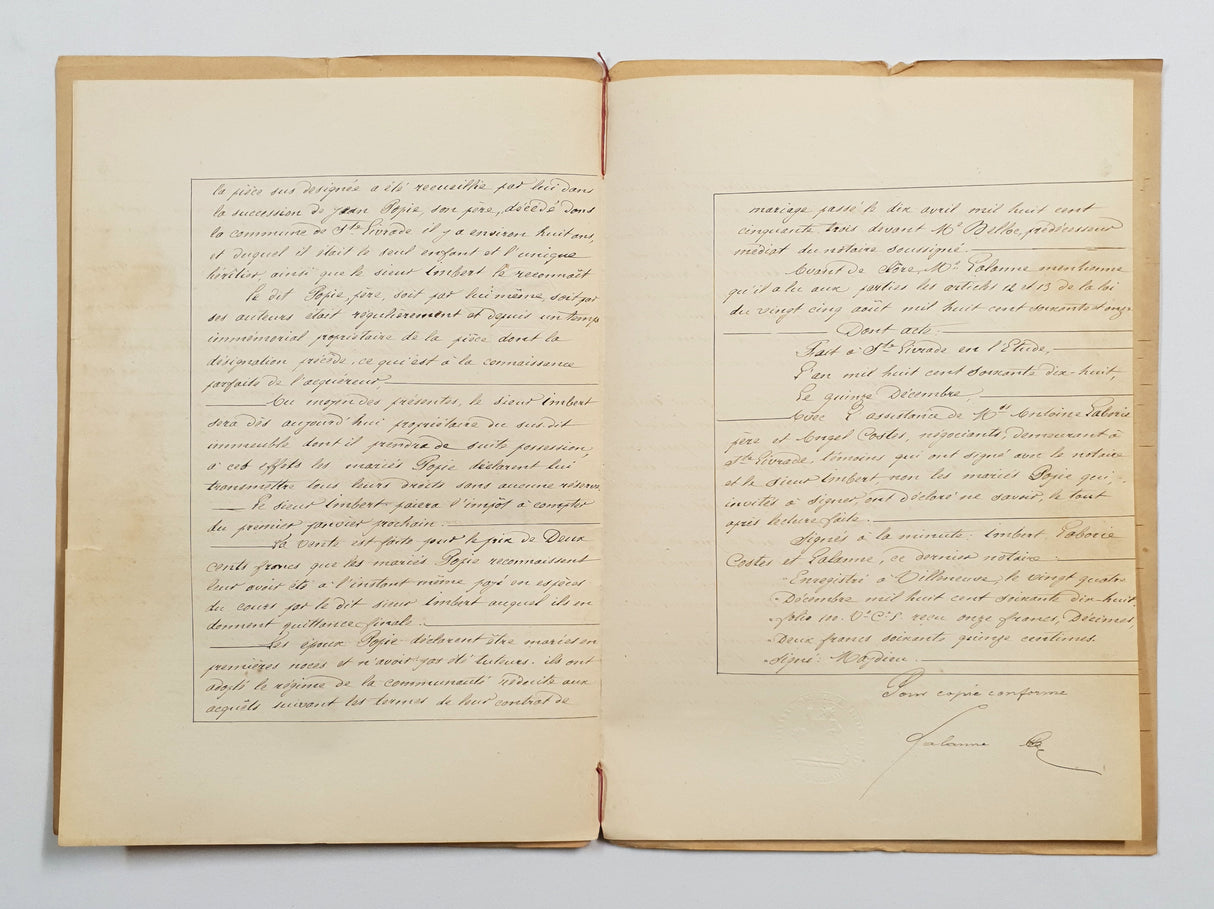 la pièce sus designée a été recueillie par lui dans
la succession de Jean Popie, son père, décédé dans
la commune de Ste Livrade il y a environ huit ans,
et duquel il était le seul enfant et l'unique
héritier ainsi que le sieur Imbert le reconnaît
Le dit Popie, père, soit par lui même, soit par
ses auteurs était régulièrement et depuis un temps
immémorial propriétaire de la pièce dont la
désignation précède, ce qu'est à la connaissance
parfaite de l'acquéreur,
Au moyen des présentes, le sieur Imbert
sera dès aujourd'hui propriétaire du sus dit
immeuble dont il prendra de suite possession,
à ces effets les mariés Popie déclarent lui
transmettre tous leurs droits sans aucune réserve,
Le sieur Imbert paiera l'impôt à compter
du premier janvier prochain.
La vente est faite pour le prix de Deux
cents francs que les mariés Popie reconnaissent
leur avoir été à l'instant même payé en espèces
du cours par le dit sieur Imbert auquel ils en
donnent quittance finale.
Les époux Popie déclarent être mariés en
premières noces et n'avoir pas été tuteurs. ils ont
adopté le régime de la communauté réduite aux
acquêts suivant les termes de leur contrat de
mariage passé le dix avril mil huit cent
cinquante trois devant Me Belloc, prédécesseur
médiat du notaire soussigné.
Avant de clore, Me Lalanne mentionne
qu'il a lu aux parties les articles 12 et 13 de la loi
du vingt cinq août mil huit cent soixante et onze
Dont acte.
Fait à Ste Livrade en l'Etude,
L'an mil huit cent soixante dix-huit,
Le quinze Décembre,
Avec l'assistance de Mrs Antoine Laborie
père et Angel Costes, négociants, demeurant à
Ste Livrade, témoins qui ont signé avec le notaire
et le sieur Imbert non les mariés Popie qui,
invités à signer, ont déclaré ne savoir, le tout
après lecture faite.
Signés à la minute: Imbert, Laborie
Costes et Lalanne, ce dernier notaire.
Enregistré à Villeneuve, le vingt quatre
Décembre mil huit cent soixante dix-huit
folio Vo C. 5. reçu onze francs, Décimes,
Deux francs soixante quinze centimes.
Signé:
Pour copie conforme
Lalanne